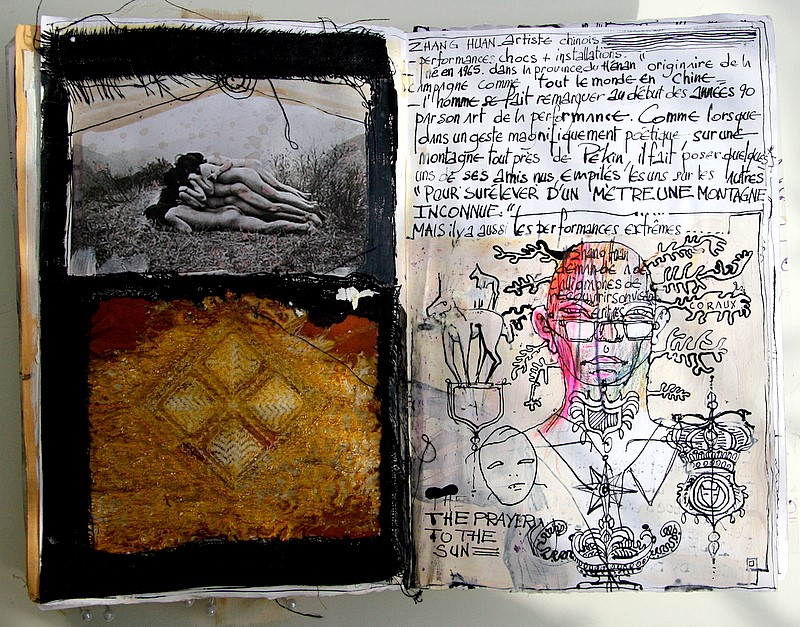 ZHANG HUAN Artiste chinois
performances, chocs + installations.
né en 1965. dans la province du Henan" originaire de la
campagne comme "tout le monde en Chine-
- l'homme se fait remarquer au début des années 90
par son art de la performance. Comme lorsque
dans un geste magnifiquement poétique, sur une
montagne tout près de Pékin, il fait poser quelques
uns de ses amis nus, empilés les uns sur les autres
"POUR SURÉLEVER D'UN MÈTRE UNE MONTAGNE
INCONNUE."
MAIS il y a aussi les performances extrêmes.......
Zhang Huan
demande à des
calligraphes de
recouvrir son visage
ORAUX
THE PRAYER
TO THE
SUN